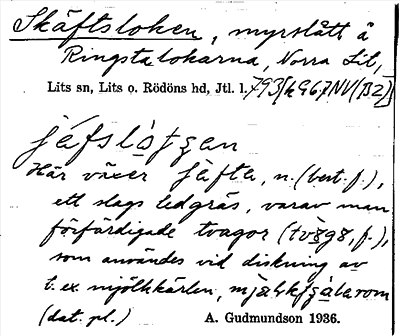 Skäftsloken, myrslått å
Ringstalokarna, Norra Lit,
Lits sn, Lits o. Rödöns hd, Jtl. l. 793[h967NV(B2)]
Här växer jäfta, n. (best. f.),
ett slags ledgräs, varav man
förfärdigade tvagor (f.),
som användes vid diskning av
t. ex. mjölkkärlen,
(dat. pl.) A. Gudmundson 1936.